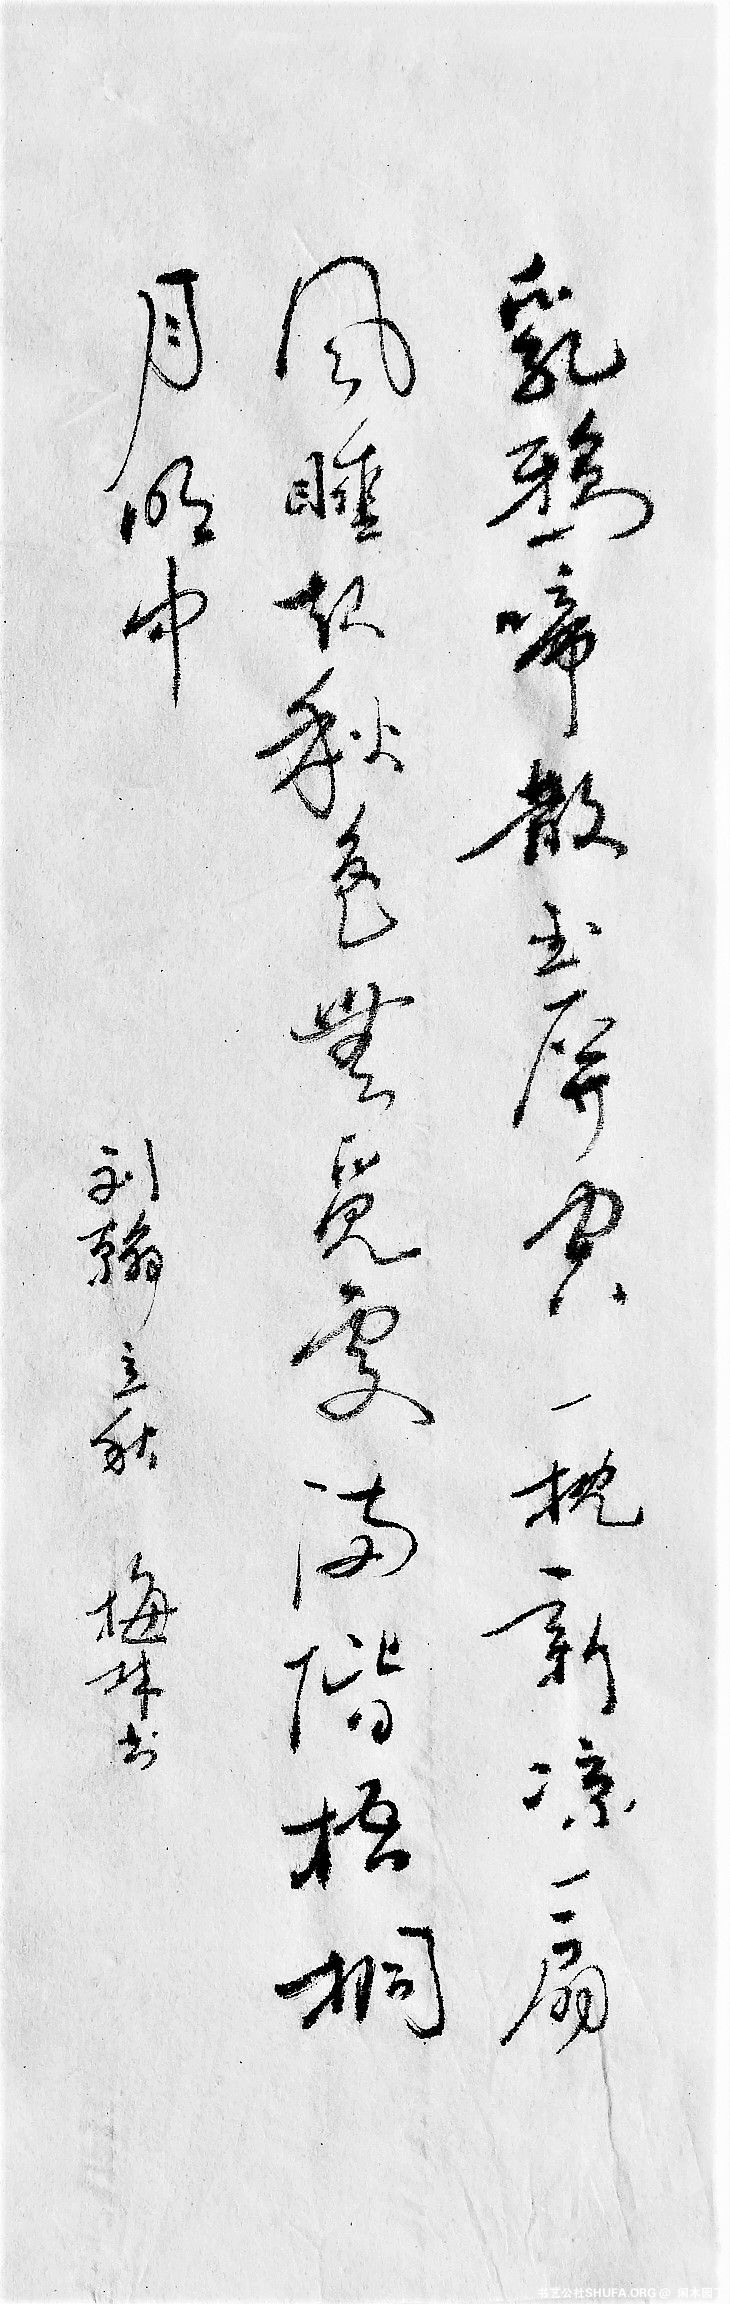 乳鸦啼散玉屏空一枕新凉一扇
风睡起秋色無覓處满階梧桐
月明中
刘翰立秋 梅林书
书艺公社SHUFA.ORG@